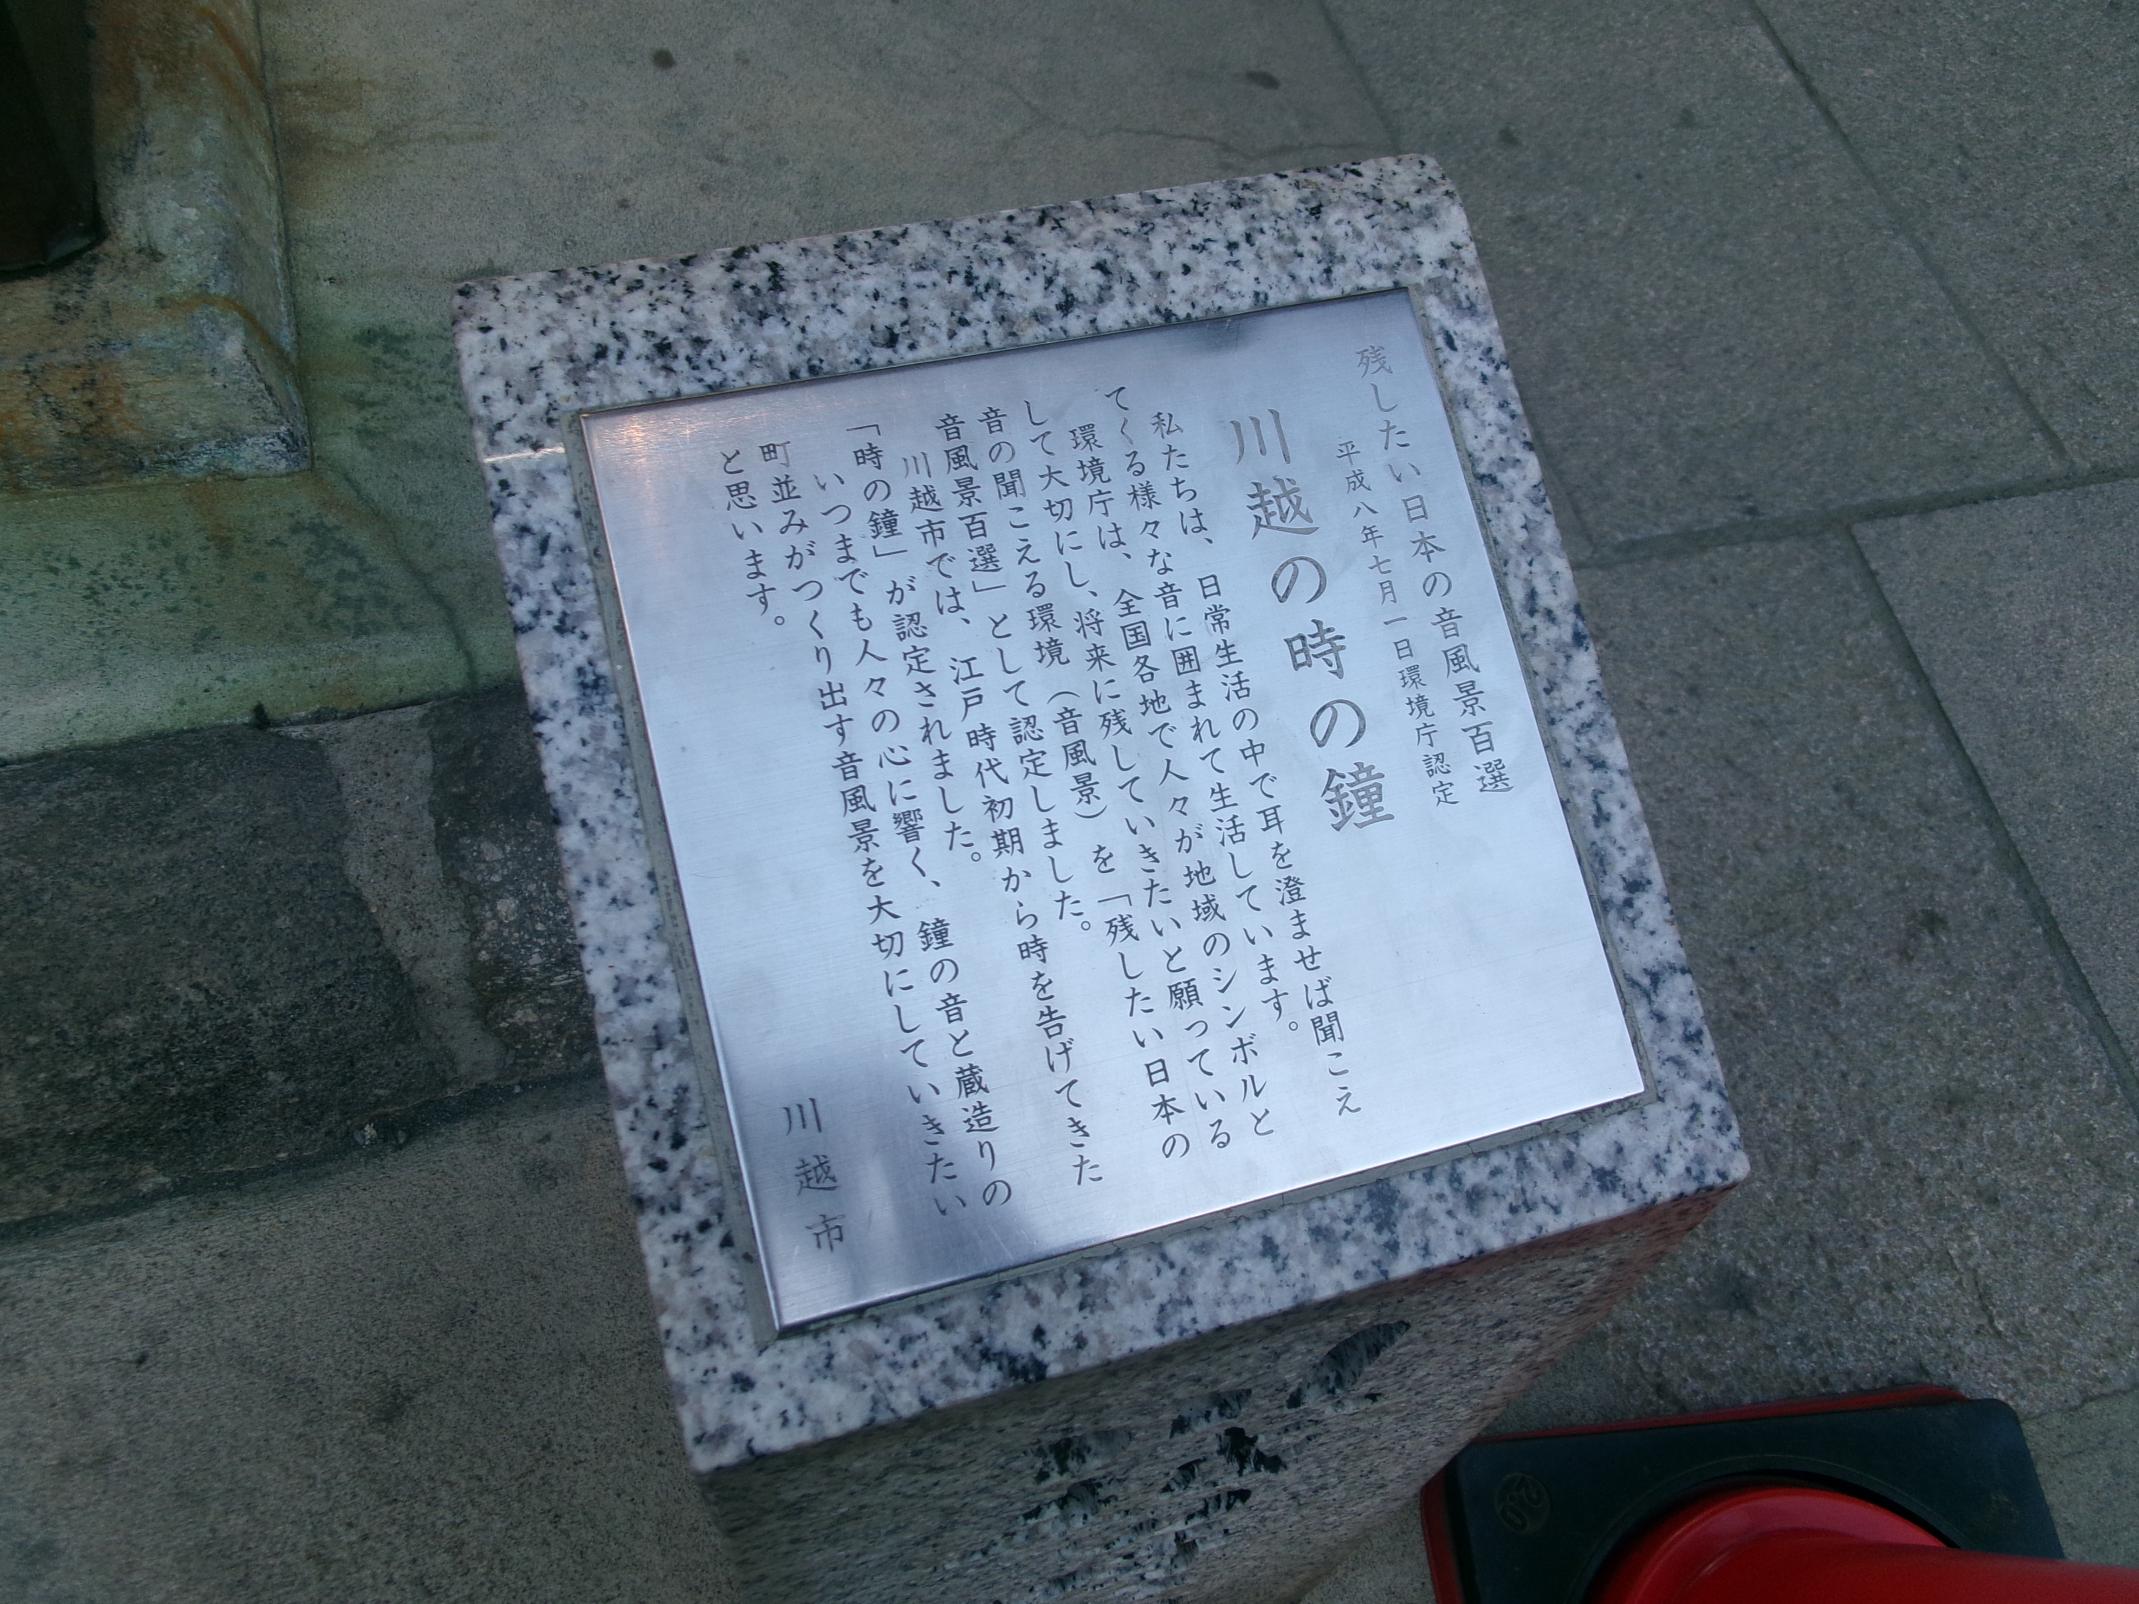 残したい日本の音風景百選
平成八年七月一日環境庁認定
川越の時の鐘
私たちは、日常生活の中で耳を澄ませば聞こえ
てくる様々な音に囲まれて生活しています。
環境庁は、全国各地で人々が地域のシンボルと
して大切にし、将来に残していきたいと願っている
音の聞こえる環境（音風景）を「残したい日本の
音風景百選」として認定しました。
川越市では、江戸時代初期から時を告げてきた
「時の鐘」が認定されました。
いつまでも人々の心に響く、鐘の音と蔵造りの
町並みがつくり出す音風景を大切にしていきたい
と思います。
川越市